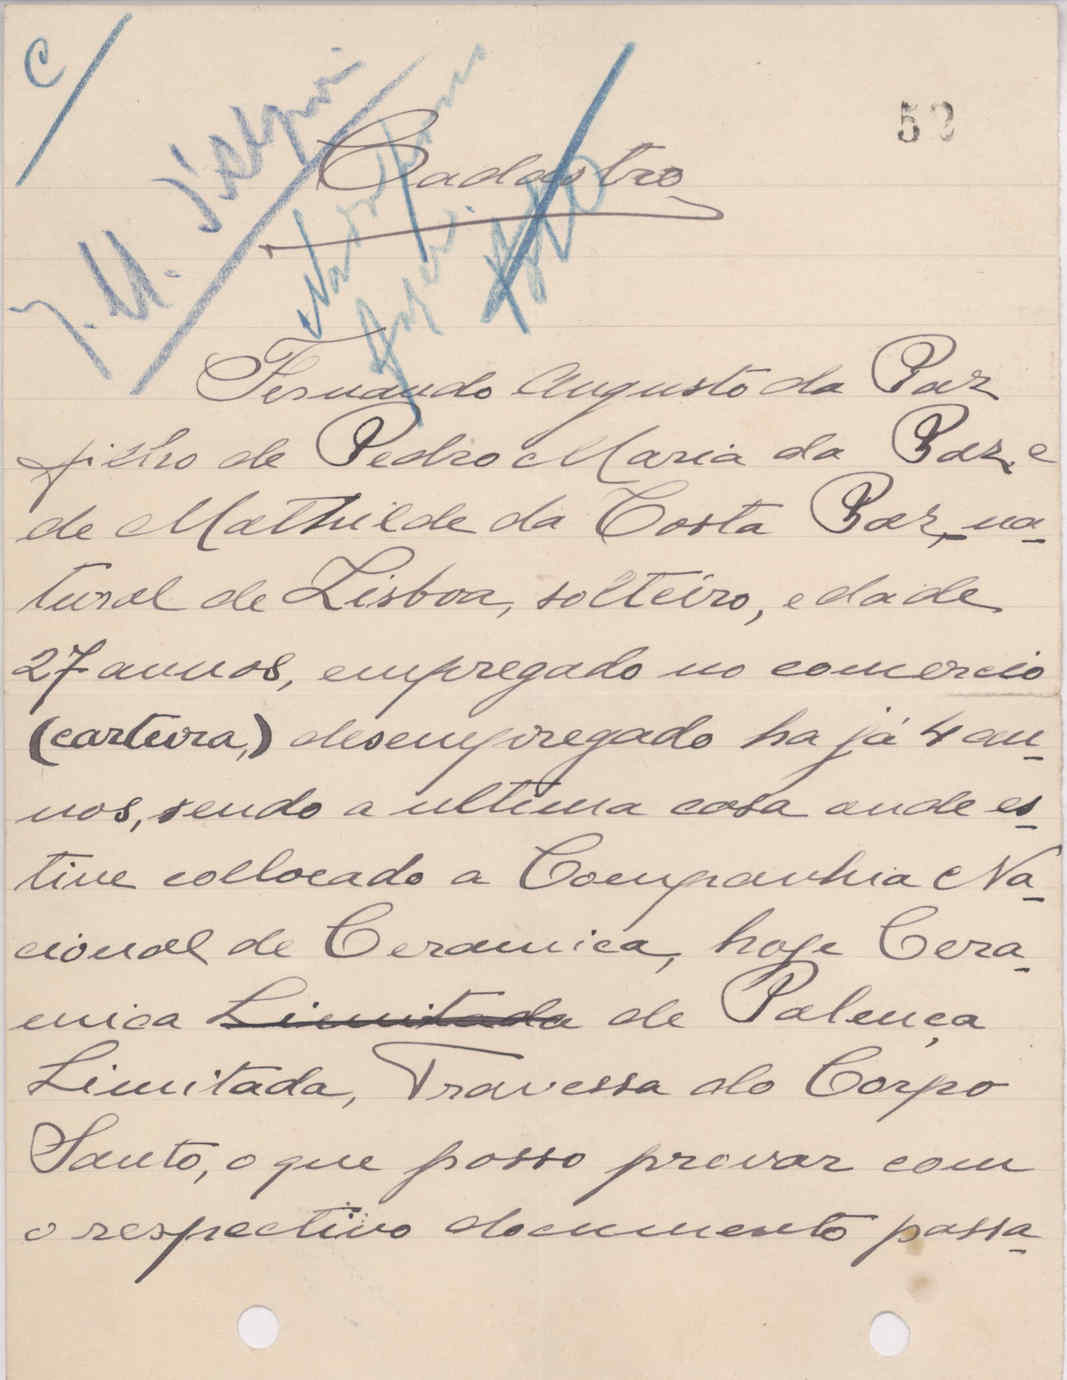 C
52
J. M.
Cadastro
Fernando Augusto da Paz
filho de Pedro Maria da Paz, e
de Mathilde da Costa Paz, na-
tural de Lisboa, solteiro, edade
27 annos, empregado no comercio
(carteira,) desempregado ha já 4 an-
nos, sendo a ultima casa onde es-
tive collocado a Companhia Na-
cional de Ceramica, hoje Cera-
mica Limitada de Palença
Limitada, Travessa do Corpo
Santo, o que posso provar com
o respectivo documento passa-